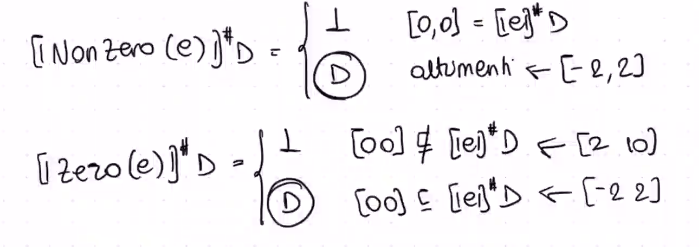 [|Non Zero (e)|]# D = { ⊥ [0,0] = [|e|]# D
(D) altrimenti ← [-2,2]
[|Zero (e)|]# D = { ⊥ [00] ⊈ [|e|]# D ← [2 10]
(D) [00] ⊆ [|e|]# D ← [-2 2]